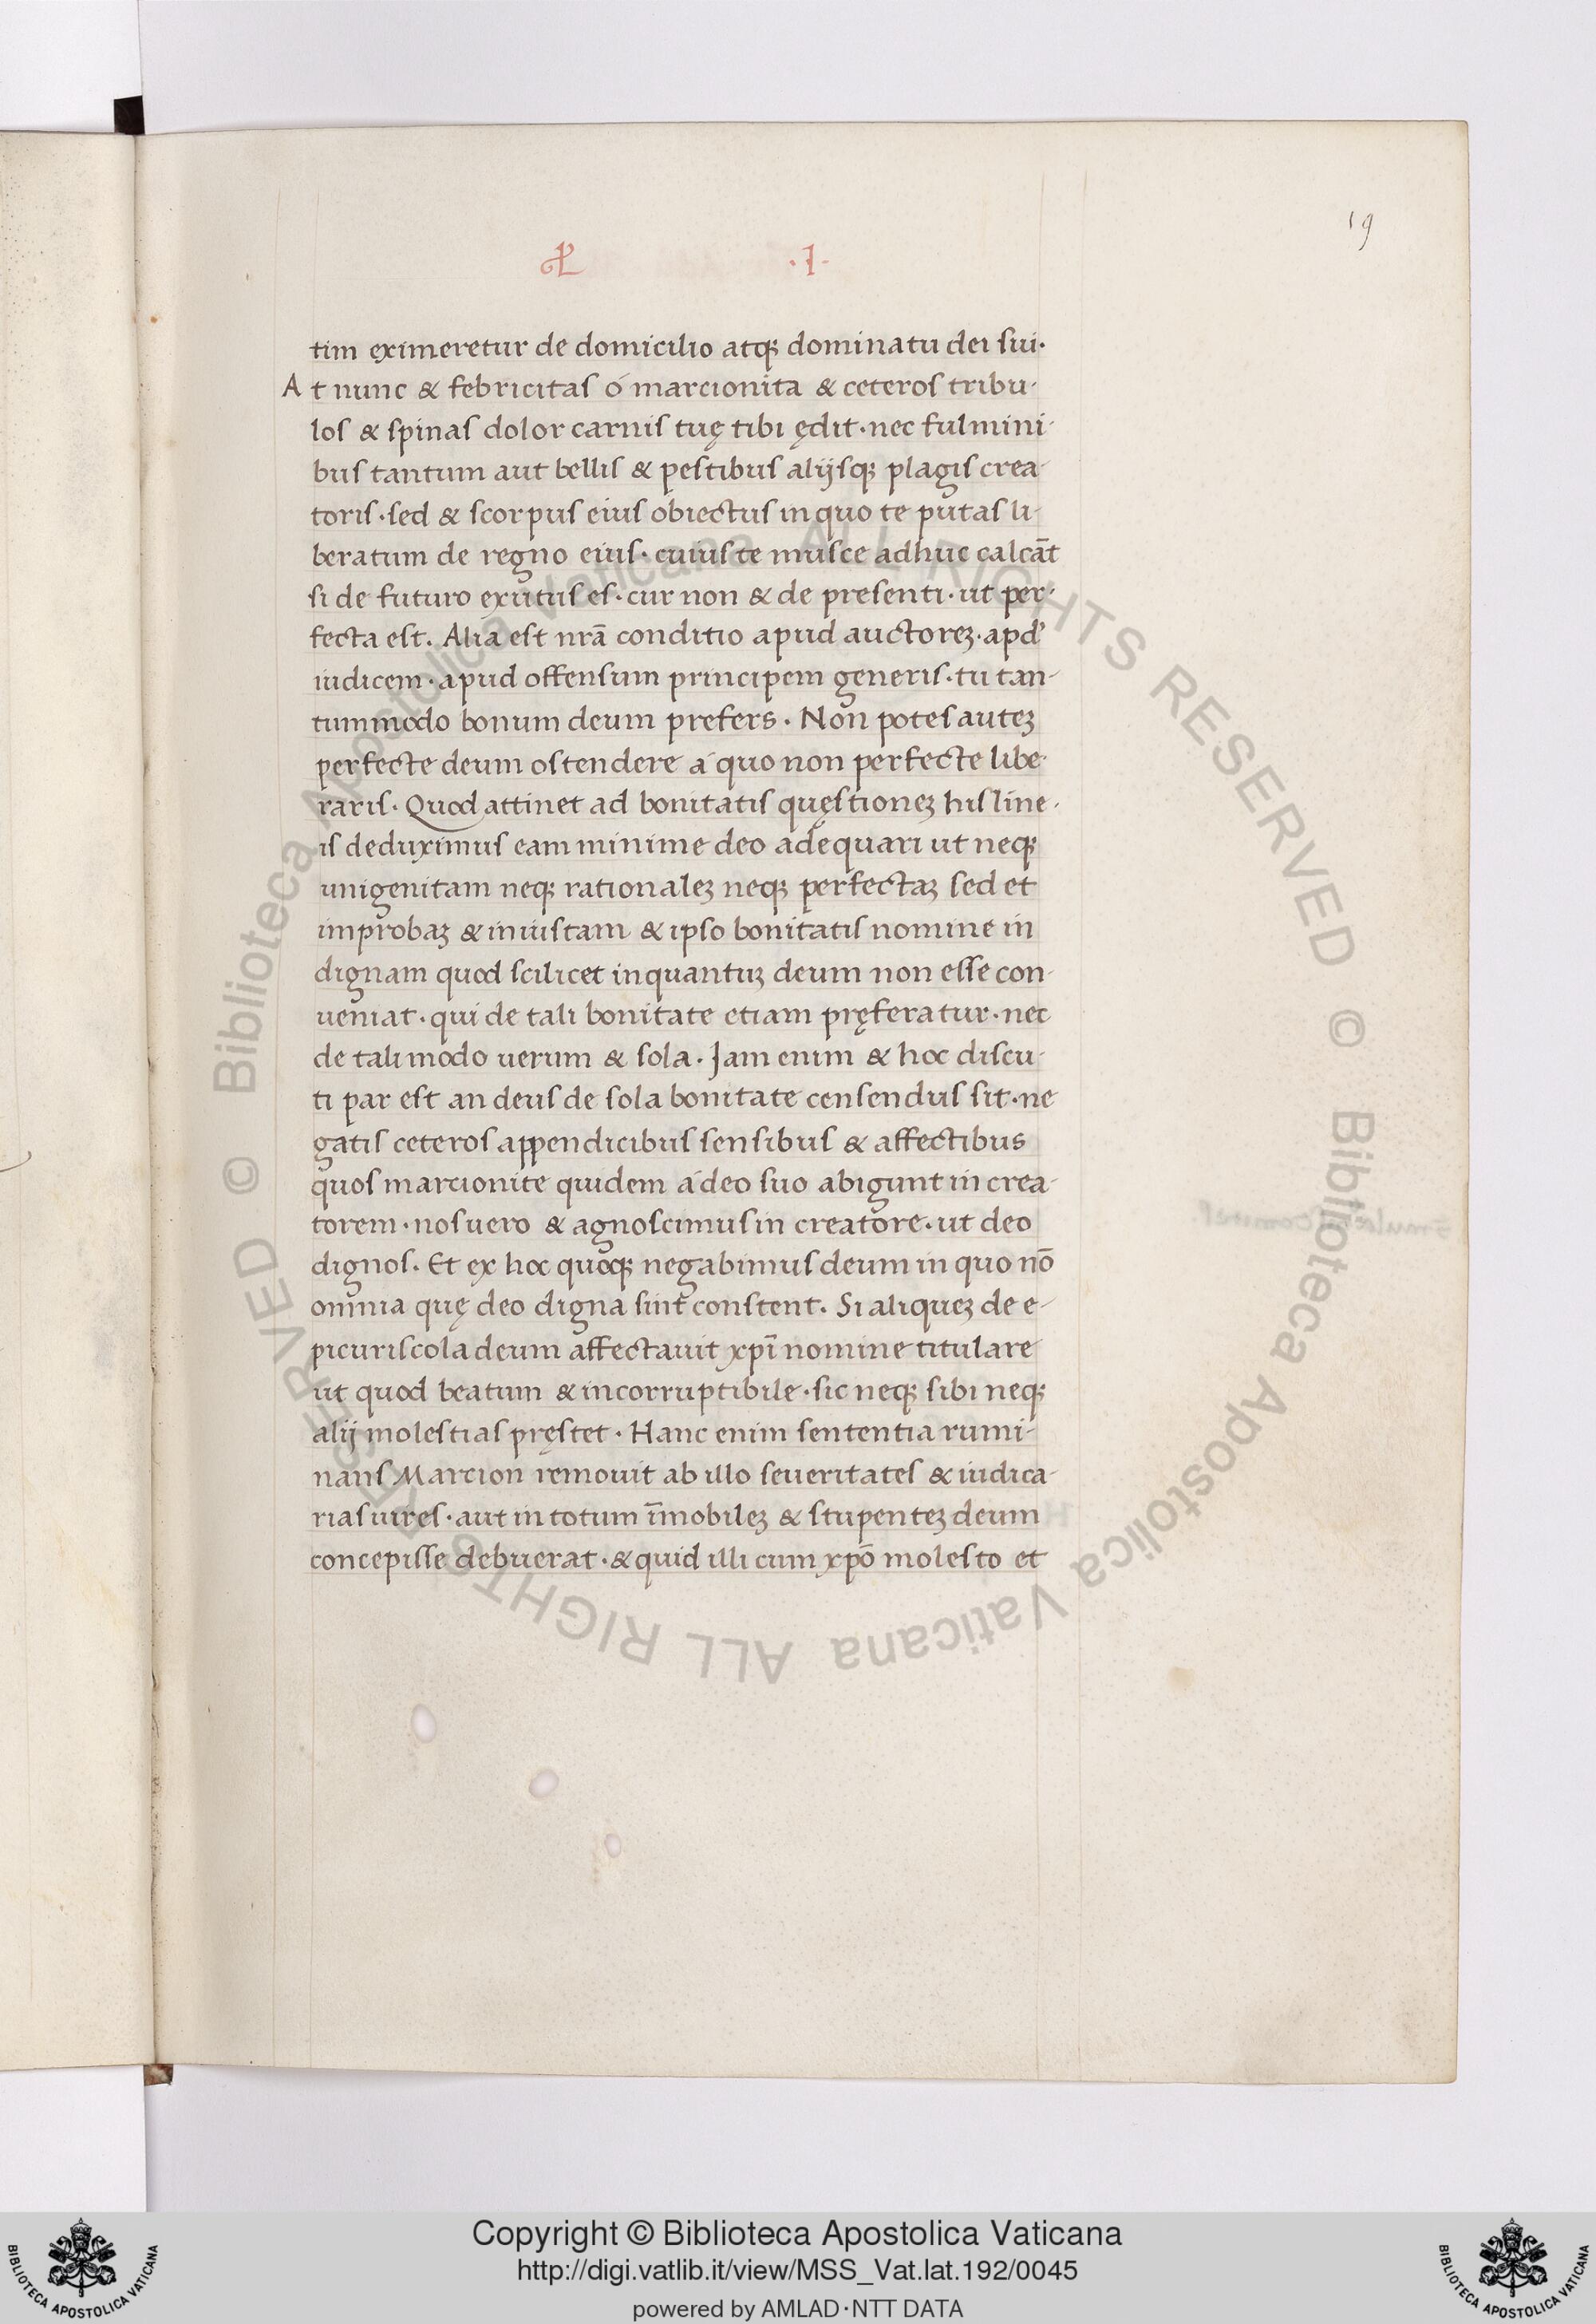 19
·I·
tim eximeretur de domicilio atqꝫ dominatu dei sui·
At nunc & febricitas ó marcionita & ceteros tribu-
los & spinas dolor carnis tuę tibi ędit· nec fulmini-
bus tantum aut bellis & pestibus alijsqꝫ plagis crea-
toris· sed & scorpus eius obiectus in quo te putas li-
beratum de regno eius· cuius te musce adhuc calcāt
si de futuro exutus es· cur non & de presenti· ut per-
fecta est. Alia est nrā conditio apud auctoreꝫ· apd'
iudicem· apud offensum principem generis· tu tan-
tummodo bonum deum prefers. Non potes auteꝫ
perfecte deum ostendere á quo non perfecte libe-
raris. Quod attinet ad bonitatis quęstioneꝫ his line-
is deduximus eam minime deo adequari ut neqꝫ
unigenitam neqꝫ rationaleꝫ neqꝫ perfectaꝫ sed et
improbaꝫ & iniustam & ipso bonitatis nomine in
dignam quod scilicet inquantuꝫ deum non esse con-
ueniat· qui de tali bonitate etiam pręferatur· nec
de tali modo uerum & sola. Jam enim & hoc discu-
ti par est an deus de sola bonitate censendus sit· ne
gatis ceteros appendicibus sensibus & affectibus
quos marcionite quidem á deo suo abigunt in crea-
torem· nos uero & agnoscimus in creatore· ut deo
dignos. Et ex hoc quoqꝫ negabimus deum in quo nō
omnia quę deo digna sint constent. Si aliqueꝫ de e-
picuri scola deum affectauit xpī nomine titulare
ut quod beatum & incorruptibile· sic neqꝫ sibi neqꝫ
alij molestias pręstet. Hanc enim sententia rumi-
nans Marcion remouit ab illo seueritates & iudica-
rias uires· aut in totum īmobileꝫ & stupenteꝫ deum
concepisse debuerat· & quid illi cum xpō molesto et
© Biblioteca Apostolica Vaticana ALL RIGHTS RESERVED © Biblioteca Apostolica Vaticana ALL RIGHTS RESERVED
Copyright © Biblioteca Apostolica Vaticana
http://digi.vatlib.it/view/MSS_Vat.lat.192/0045
powered by AMLAD·NTT DATA
BIBLIOTECA APOSTOLICA VATICANA
BIBLIOTECA APOSTOLICA VATICANA